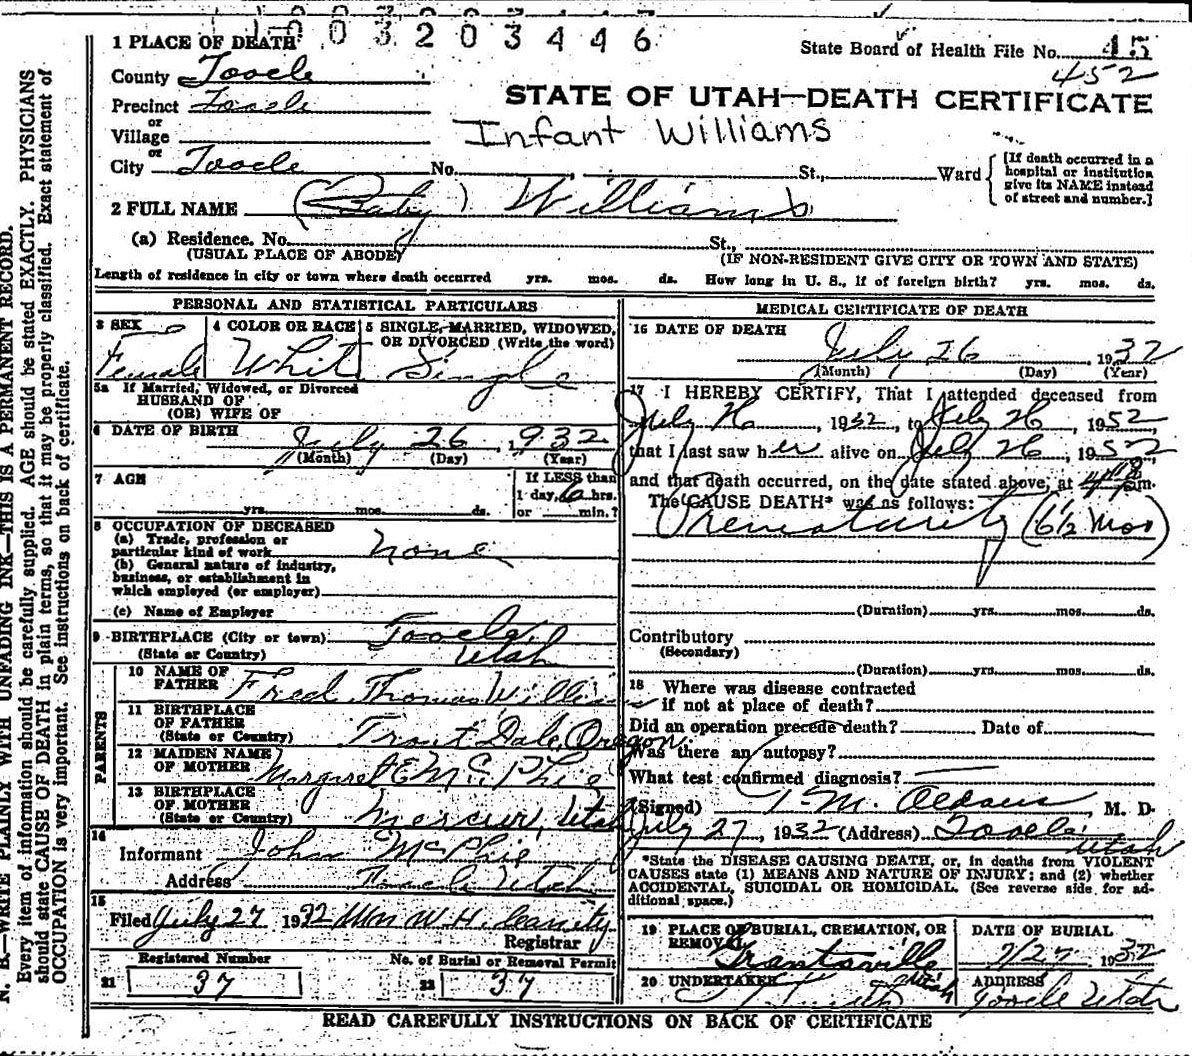 003203446
1 PLACE OF DEATH
State Board of Health File No. 45
County Tooele
452
Precinct Tooele
STATE OF UTAH—DEATH CERTIFICATE
or
Village
Infant Williams
or
City Tooele No. , St., Ward
[If death occurred in a
hospital or institution
give its NAME instead
of street and number.]
2 FULL NAME (Baby) Williams
(a) Residence. No. St.,
(USUAL PLACE OF ABODE) (IF NON-RESIDENT GIVE CITY OR TOWN AND STATE)
Length of residence in city or town where death occurred yrs. mos. ds. How long in U. S., if of foreign birth? yrs. mos. ds.
PERSONAL AND STATISTICAL PARTICULARS
3 SEX 4 COLOR OR RACE 5 SINGLE, MARRIED, WIDOWED,
OR DIVORCED (Write the word)
Female White Single
5a If Married, Widowed, or Divorced
HUSBAND OF
(OR) WIFE OF
6 DATE OF BIRTH July 26, 1932
(Month) (Day) (Year)
7 AGE If LESS than
1 day, 6 hrs.
yrs. mos. ds. or min.?
8 OCCUPATION OF DECEASED
(a) Trade, profession or
particular kind of work none
(b) General nature of industry,
business, or establishment in
which employed (or employer)
(c) Name of Employer
9 BIRTHPLACE (City or town) Tooele,
(State or Country) Utah
PARENTS
10 NAME OF
FATHER Fred Thomas Williams
11 BIRTHPLACE
OF FATHER
(State or Country) Trout Dale, Oregon
12 MAIDEN NAME
OF MOTHER Margaret E McPhie
13 BIRTHPLACE
OF MOTHER
(State or Country) Mercur, Utah
14
Informant John McPhie
Address Tooele Utah
15
Filed July 27 1932 Mrs W. H. Cassity
Registrar
Registered Number No. of Burial or Removal Permit
21 37 22 37
MEDICAL CERTIFICATE OF DEATH
16 DATE OF DEATH
July 26, 1932
(Month) (Day) (Year)
17 I HEREBY CERTIFY, That I attended deceased from
July 26, 1932, to July 26, 1932
that I last saw her alive on July 26, 1932
and that death occurred, on the date stated above, at m.
The CAUSE DEATH* was as follows:
Prematurity (6½ mos)
(Duration) yrs. mos. ds.
Contributory
(Secondary)
(Duration) yrs. mos. ds.
18 Where was disease contracted
if not at place of death?
Did an operation precede death? Date of
Was there an autopsy?
What test confirmed diagnosis?
(Signed) T. M. Aldous M. D.
July 27, 1932 (Address) Tooele Utah
*State the DISEASE CAUSING DEATH, or, in deaths from VIOLENT
CAUSES state (1) MEANS AND NATURE OF INJURY; and (2) whether
ACCIDENTAL, SUICIDAL OR HOMICIDAL. (See reverse side for ad-
ditional space.)
19 PLACE OF BURIAL, CREMATION, OR
REMOVAL Grantsville Utah
DATE OF BURIAL
7/27 1932
20 UNDERTAKER Smith
ADDRESS
Tooele Utah
READ CAREFULLY INSTRUCTIONS ON BACK OF CERTIFICATE
N. B.—WRITE PLAINLY WITH UNFADING INK—THIS IS A PERMANENT RECORD.
Every item of information should be carefully supplied. AGE should be stated EXACTLY. PHYSICIANS
should state CAUSE OF DEATH in plain terms, so that it may be properly classified. Exact statement of
OCCUPATION is very important. See instructions on back of certificate.